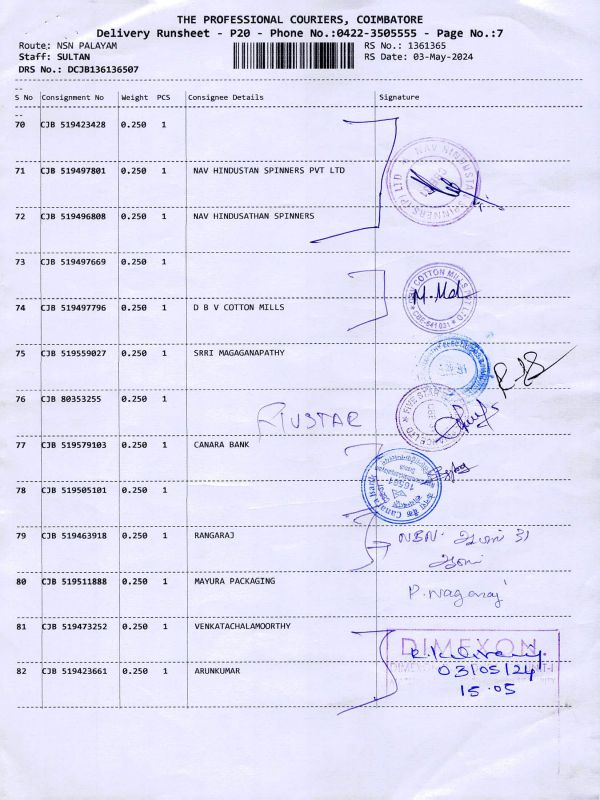 THE PROFESSIONAL COURIERS, COIMBATORE
Delivery Runsheet - P20 - Phone No.:0422-3505555 - Page No.:7
Route: NSN PALAYAM
RS No.: 1361365
Staff: SULTAN
RS Date: 03-May-2024
DRS No.: DCJB136136507
--
S No Consignment No Weight PCS Consignee Details Signature
--
70 CJB 519423428 0.250 1
71 CJB 519497801 0.250 1 NAV HINDUSTAN SPINNERS PVT LTD
72 CJB 519496808 0.250 1 NAV HINDUSATHAN SPINNERS
73 CJB 519497669 0.250 1
M.Md
74 CJB 519497796 0.250 1 D B V COTTON MILLS
75 CJB 519559027 0.250 1 SRRI MAGAGANAPATHY
76 CJB 80353255 0.250 1
FIUSTAR
77 CJB 519579103 0.250 1 CANARA BANK
Canara Bank
78 CJB 519505101 0.250 1
79 CJB 519463918 0.250 1 RANGARAJ
80 CJB 519511888 0.250 1 MAYURA PACKAGING
P. Nagaraj
81 CJB 519473252 0.250 1 VENKATACHALAMOORTHY
DIMEXON
82 CJB 519423661 0.250 1 ARUNKUMAR
03/05/24
15.05